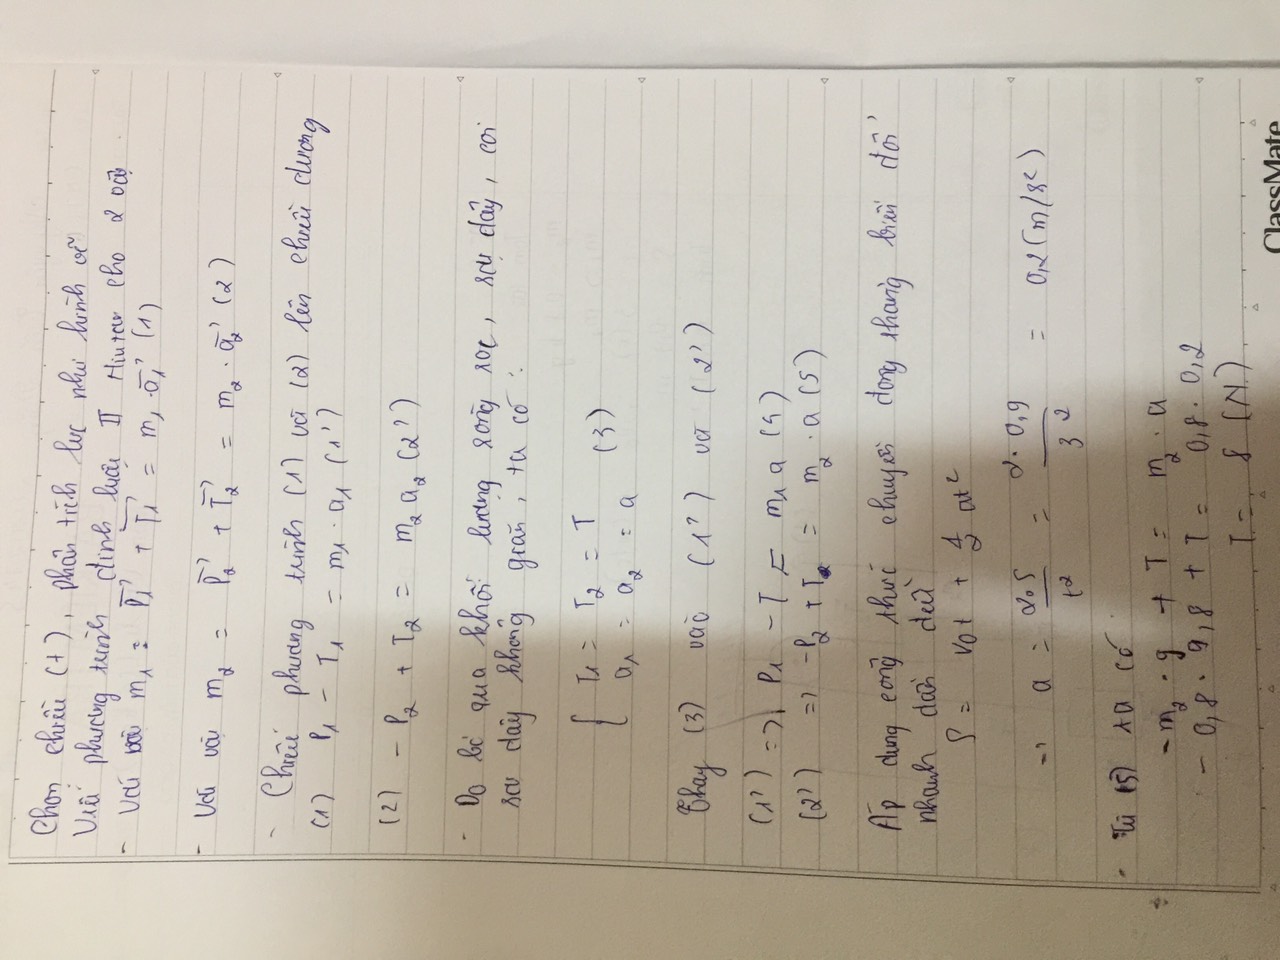 Chọn chiều (+), phân tích lực như hình vẽ
Viết phương trình định luật II Niutơn cho 2 vật
- Với vật m₁ : P₁⃗ + T₁⃗ = m₁ . a₁⃗ (1)
- Với vật m₂ = P₂⃗ + T₂⃗ = m₂ . a₂⃗ (2)
- Chiếu phương trình (1) và (2) lên chiều dương
(1) P₁ - T₁ = m₁ . a₁ (1')
(2) - P₂ + T₂ = m₂ a₂ (2')
- Do bỏ qua khối lượng ròng rọc, sợi dây, coi
sợi dây không giãn, ta có :
{ T₁ = T₂ = T
a₁ = a₂ = a (3)
Thay (3) vào (1') và (2')
(1') => P₁ - T = m₁ a (4)
(2') => -P₂ + T = m₂ . a (5)
Áp dụng công thức chuyển động thẳng biến đổi
nhanh dần đều
S = v₀t + 1/2 at²
-> a = 2.S/t² = 2.0,9/3² = 0,2 (m/s²)
- Từ (5) ta có
- m₂ . g + T = m₂ . a
- 0,8 . 9,8 + T = 0,8 . 0,2
T = 8 (N)
ClassMate